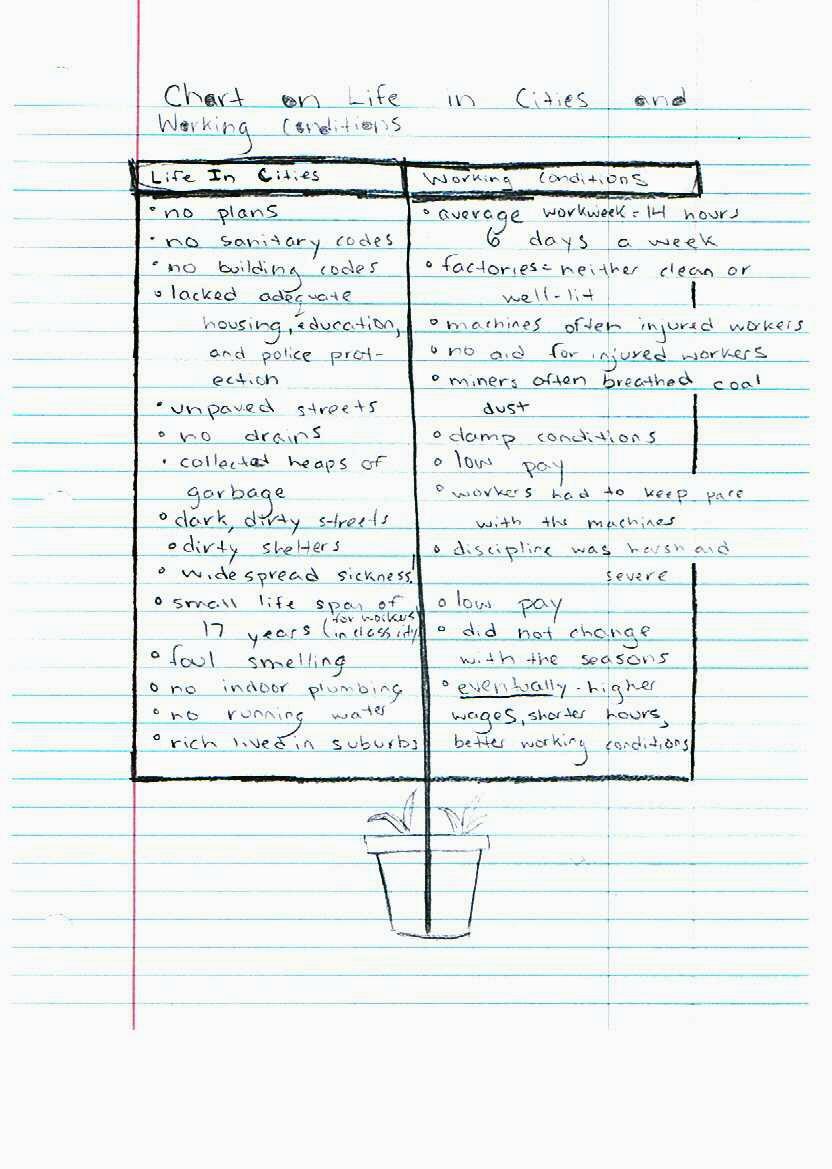 Chart on Life in Cities and
Working Conditions
Life In Cities
• no plans
• no sanitary codes
• no building codes
• lacked adequate
housing, education,
and police prot-
ection
• unpaved streets
• no drains
• collected heaps of
garbage
• dark, dirty streets
• dirty shelters
• widespread sickness!
• small life span of
17 years (for workers
in class city)
• foul smelling
• no indoor plumbing
• no running water
• rich lived in suburbs
Working Conditions
• average workweek = 14 hours
6 days a week
• factories = neither clean or
well-lit
• machines often injured workers
• no aid for injured workers
• miners often breathed coal
dust
• damp conditions
• low pay
• workers had to keep pace
with the machines
• discipline was harsh and
severe
• low pay
• did not change
with the seasons
• eventually - higher
wages, shorter hours,
better working conditions